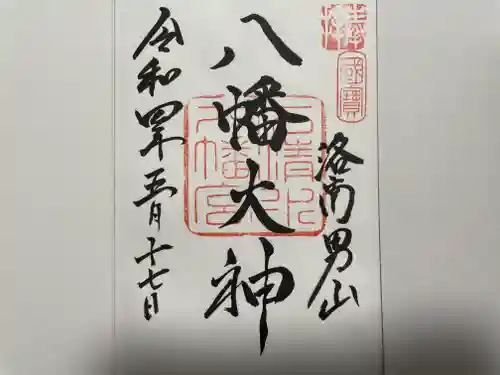 國寶
洛南男山
八幡大神
石清水八幡宮
令和四年五月十七日